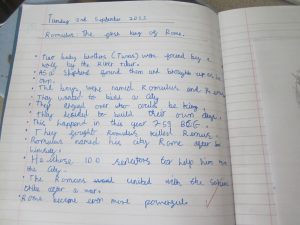 Tuesday 2nd September 2023
Romulus the first king of Rome.
• Two baby brothers (Twins) were found by a
wolf by the River Tiber.
• As a Shepherd found them and brought up as his
own.
• The boys were named Romulus and Remus
• They wanted to build a city
• They argued over who could be king
• They decided to build their own
• This happened in this year 753 BCE.
• They fought Romulus killed Remus.
• Romulus named his city Rome after
himself.
• He chose 100 senators to help him run
the city.
• The Romans united with the Sabine
tribe after a war.
• Rome became even more powerful.